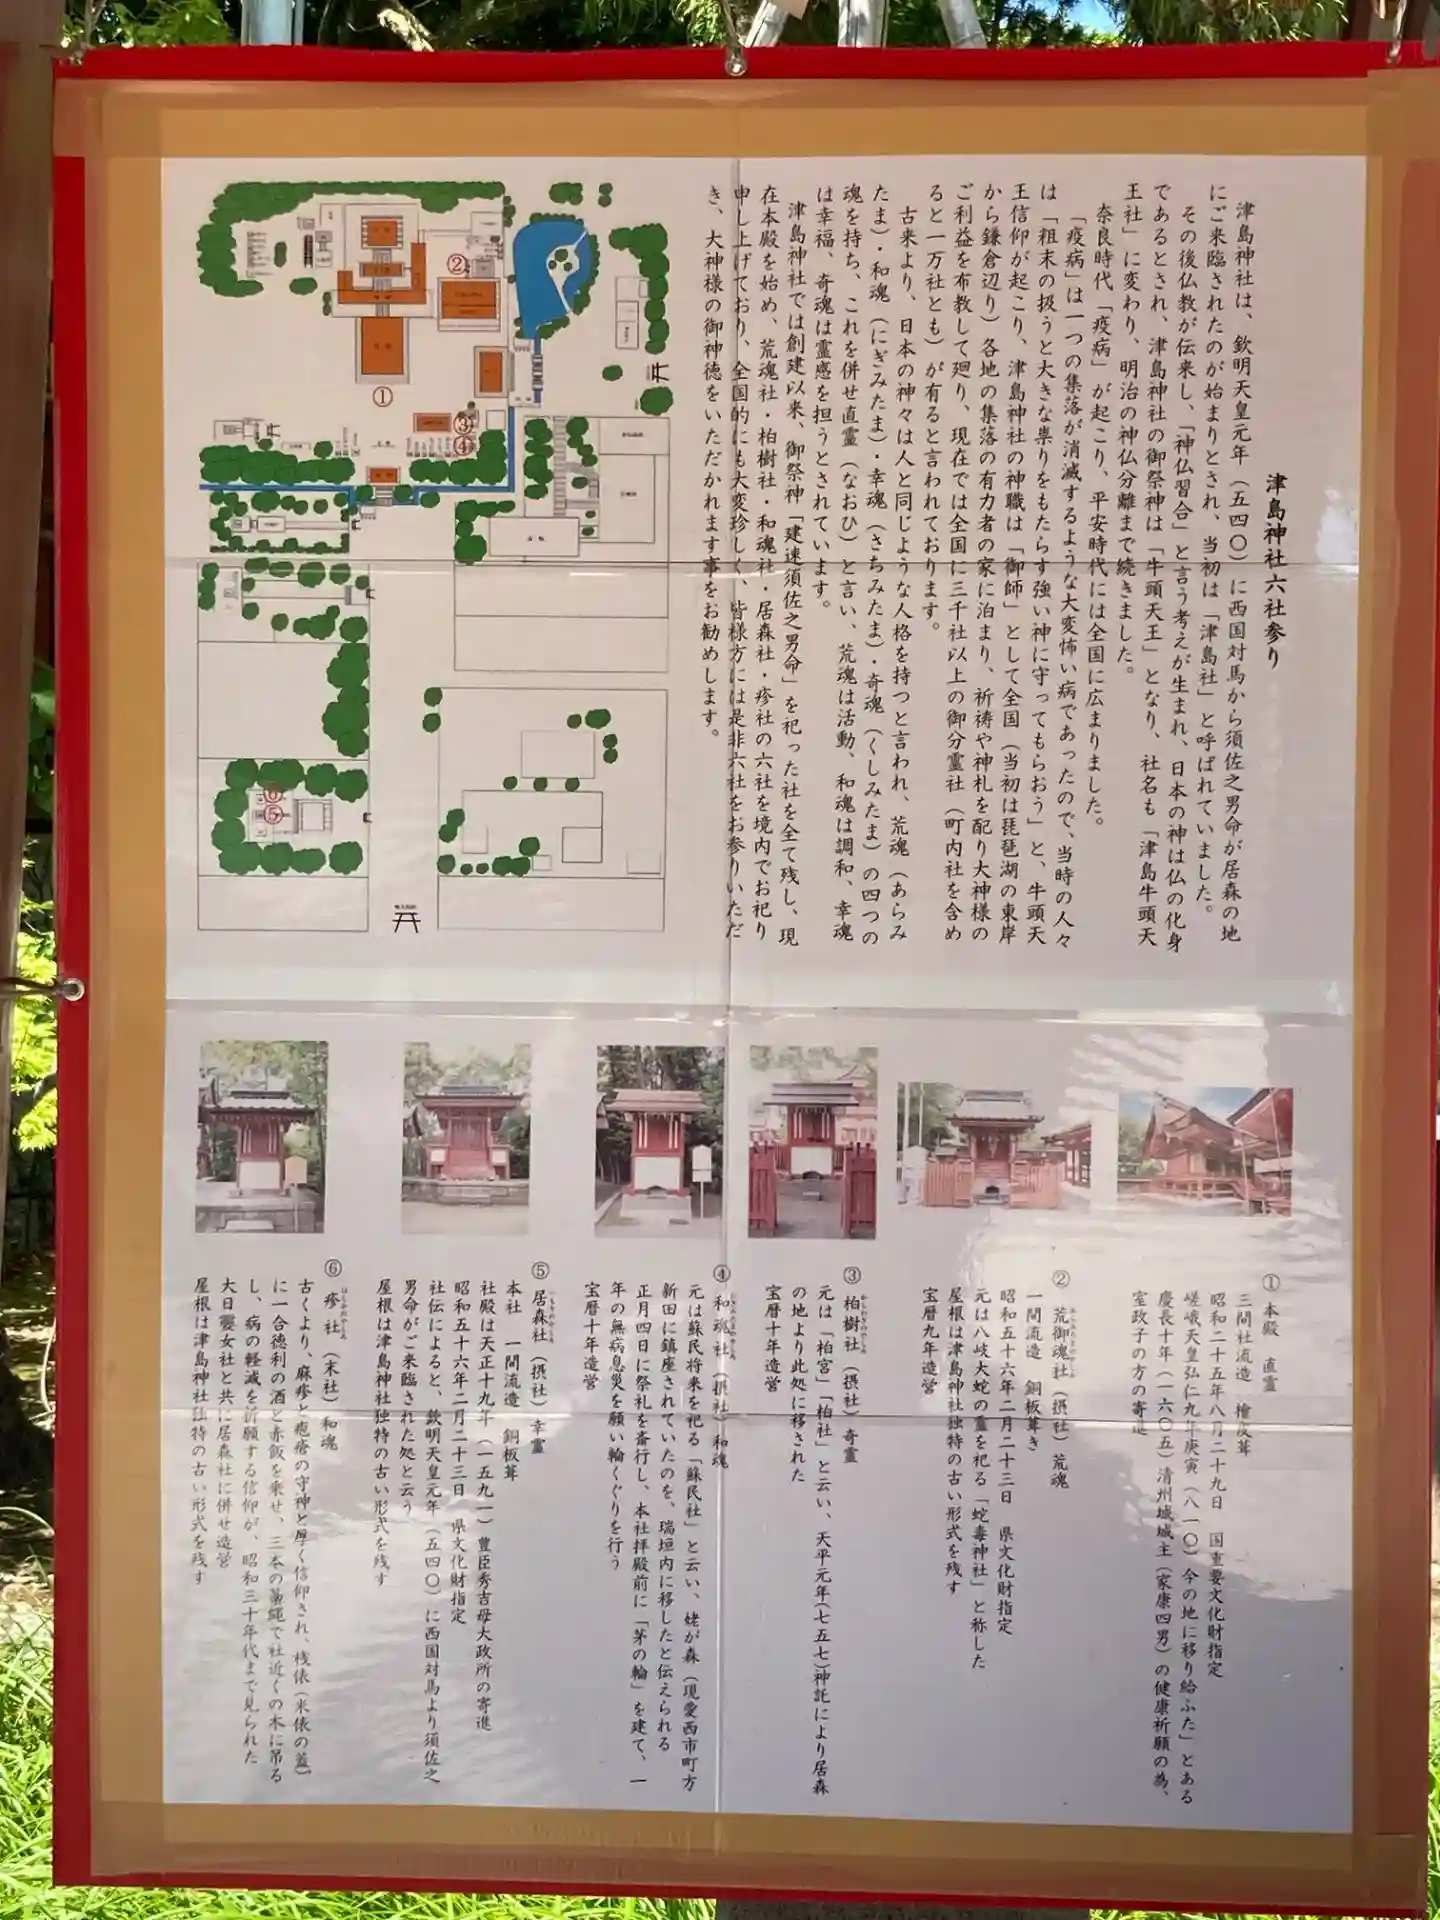 津島神社六社参り
津島神社は、欽明天皇元年(五四〇)に西国対馬から須佐之男命が居森の地
にご来臨されたのが始まりとされ、当初は「津島社」と呼ばれていました。
その後仏教が伝来し、「神仏習合」と言う考えが生まれ、日本の神は仏の化身
であるとされ、津島神社の御祭神は「牛頭天王」となり、社名も「津島牛頭天
王社」に変わり、明治の神仏分離まで続きました。
奈良時代「疫病」が起こり、平安時代には全国に広まりました。
「疫病」は一つの集落が消滅するような大変怖い病であったので、当時の人々
は「粗末の扱うと大きな祟りをもたらす強い神に守ってもらおう」と、牛頭天
王信仰が起こり、津島神社の神職は「御師」として全国(当初は琵琶湖の東岸
から鎌倉辺り)各地の集落の有力者の家に泊まり、祈祷や神札を配り大神様の
ご利益を布教して廻り、現在では全国に三千社以上の御分霊社(町内社を含め
ると一万社とも)が有ると言われております。
古来より、日本の神々は人と同じような人格を持つと言われ、荒魂(あらみ
たま)・和魂(にぎみたま)・幸魂(さちみたま)・奇魂(くしみたま)の四つの
魂を持ち、これを併せ直霊(なおひ)と言い、荒魂は活動、和魂は調和、幸魂
は幸福、奇魂は霊感を担うとされています。
津島神社では創建以来、御祭神「建速須佐之男命」を祀った社を全て残し、現
在本殿を始め、荒魂社・柏樹社・和魂社・居森社・疹社の六社を境内でお祀り
申し上げており、全国的にも大変珍しく、皆様方には是非六社をお参りいただ
き、大神様の御神徳をいただかれます事をお勧めします。
①
②
③
④
⑥
⑤
①本殿 直霊
三間社流造 檜皮葺
昭和二十五年八月二十九日 国重要文化財指定
嵯峨天皇弘仁九年庚寅(八一〇)今の地に移り給ふた」とある
慶長十年(一六〇五)清州城城主(家康四男)の健康祈願の為、
室政子の方の寄進
② 荒御魂社(摂社)荒魂
一間流造 銅板葺き
昭和五十六年二月二十三日 県文化財指定
元は八岐大蛇の霊を祀る「蛇毒神社」と称した
屋根は津島神社独特の古い形式を残す
宝暦九年造営
③ 柏樹社(摂社)奇霊
元は「柏宮」「柏社」と云い、天平元年(七五七)神託により居森
の地より此処に移された
宝暦十年造営
④ 和魂社(摂社)和魂
元は蘇民将来を祀る「蘇民社」と云い、姥が森(現愛西市町方
新田に鎮座されていたのを、瑞垣内に移したと伝えられる
正月四日に祭礼を斎行し、本社拝殿前に「茅の輪」を建て、一
年の無病息災を願い輪くぐりを行う
宝暦十年造営
⑤ 居森社(摂社)幸霊
本社 一間流造 銅板葺
社殿は天正十九年(一五九一)豊臣秀吉母大政所の寄進
昭和五十六年二月二十三日 県文化財指定
社伝によると、欽明天皇元年(五四〇)に西国対馬より須佐之
男命がご来臨された処と云う
屋根は津島神社独特の古い形式を残す
⑥ 疹社(末社)和魂
古くより、麻疹と疱瘡の守神と厚く信仰され、桟俵(米俵の蓋)
に一合徳利の酒と赤飯を乗せ、三本の藁縄で社近くの木に吊る
し、病の軽減を祈願する信仰が、昭和三十年代まで見られた
大日孁女社と共に居森社に併せ造営
屋根は津島神社独特の古い形式を残す